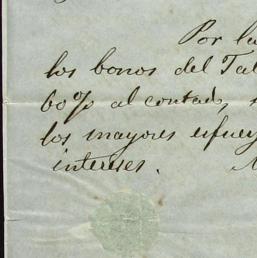 Por la
los bonos del Tal
60% al contado, s
los mayores esfuer
intereses.